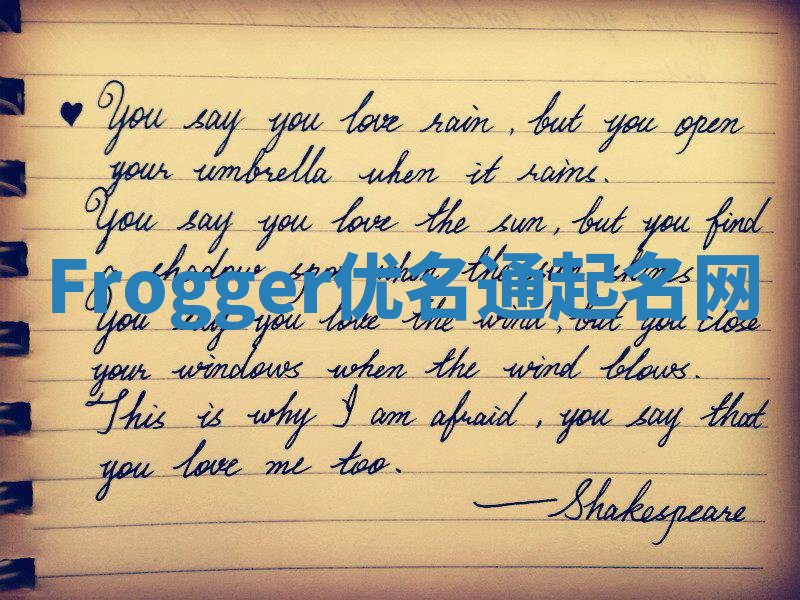 ♥ You say you love rain, but you open
your umbrella when it rains.
You say you love the sun, but you find
a shadow spot when the sun shines
Frogger优名通起名网
You say you love the wind, but you close
your windows when the wind blows.
This is why I am afraid, you say that
you love me too.
—Shakespeare